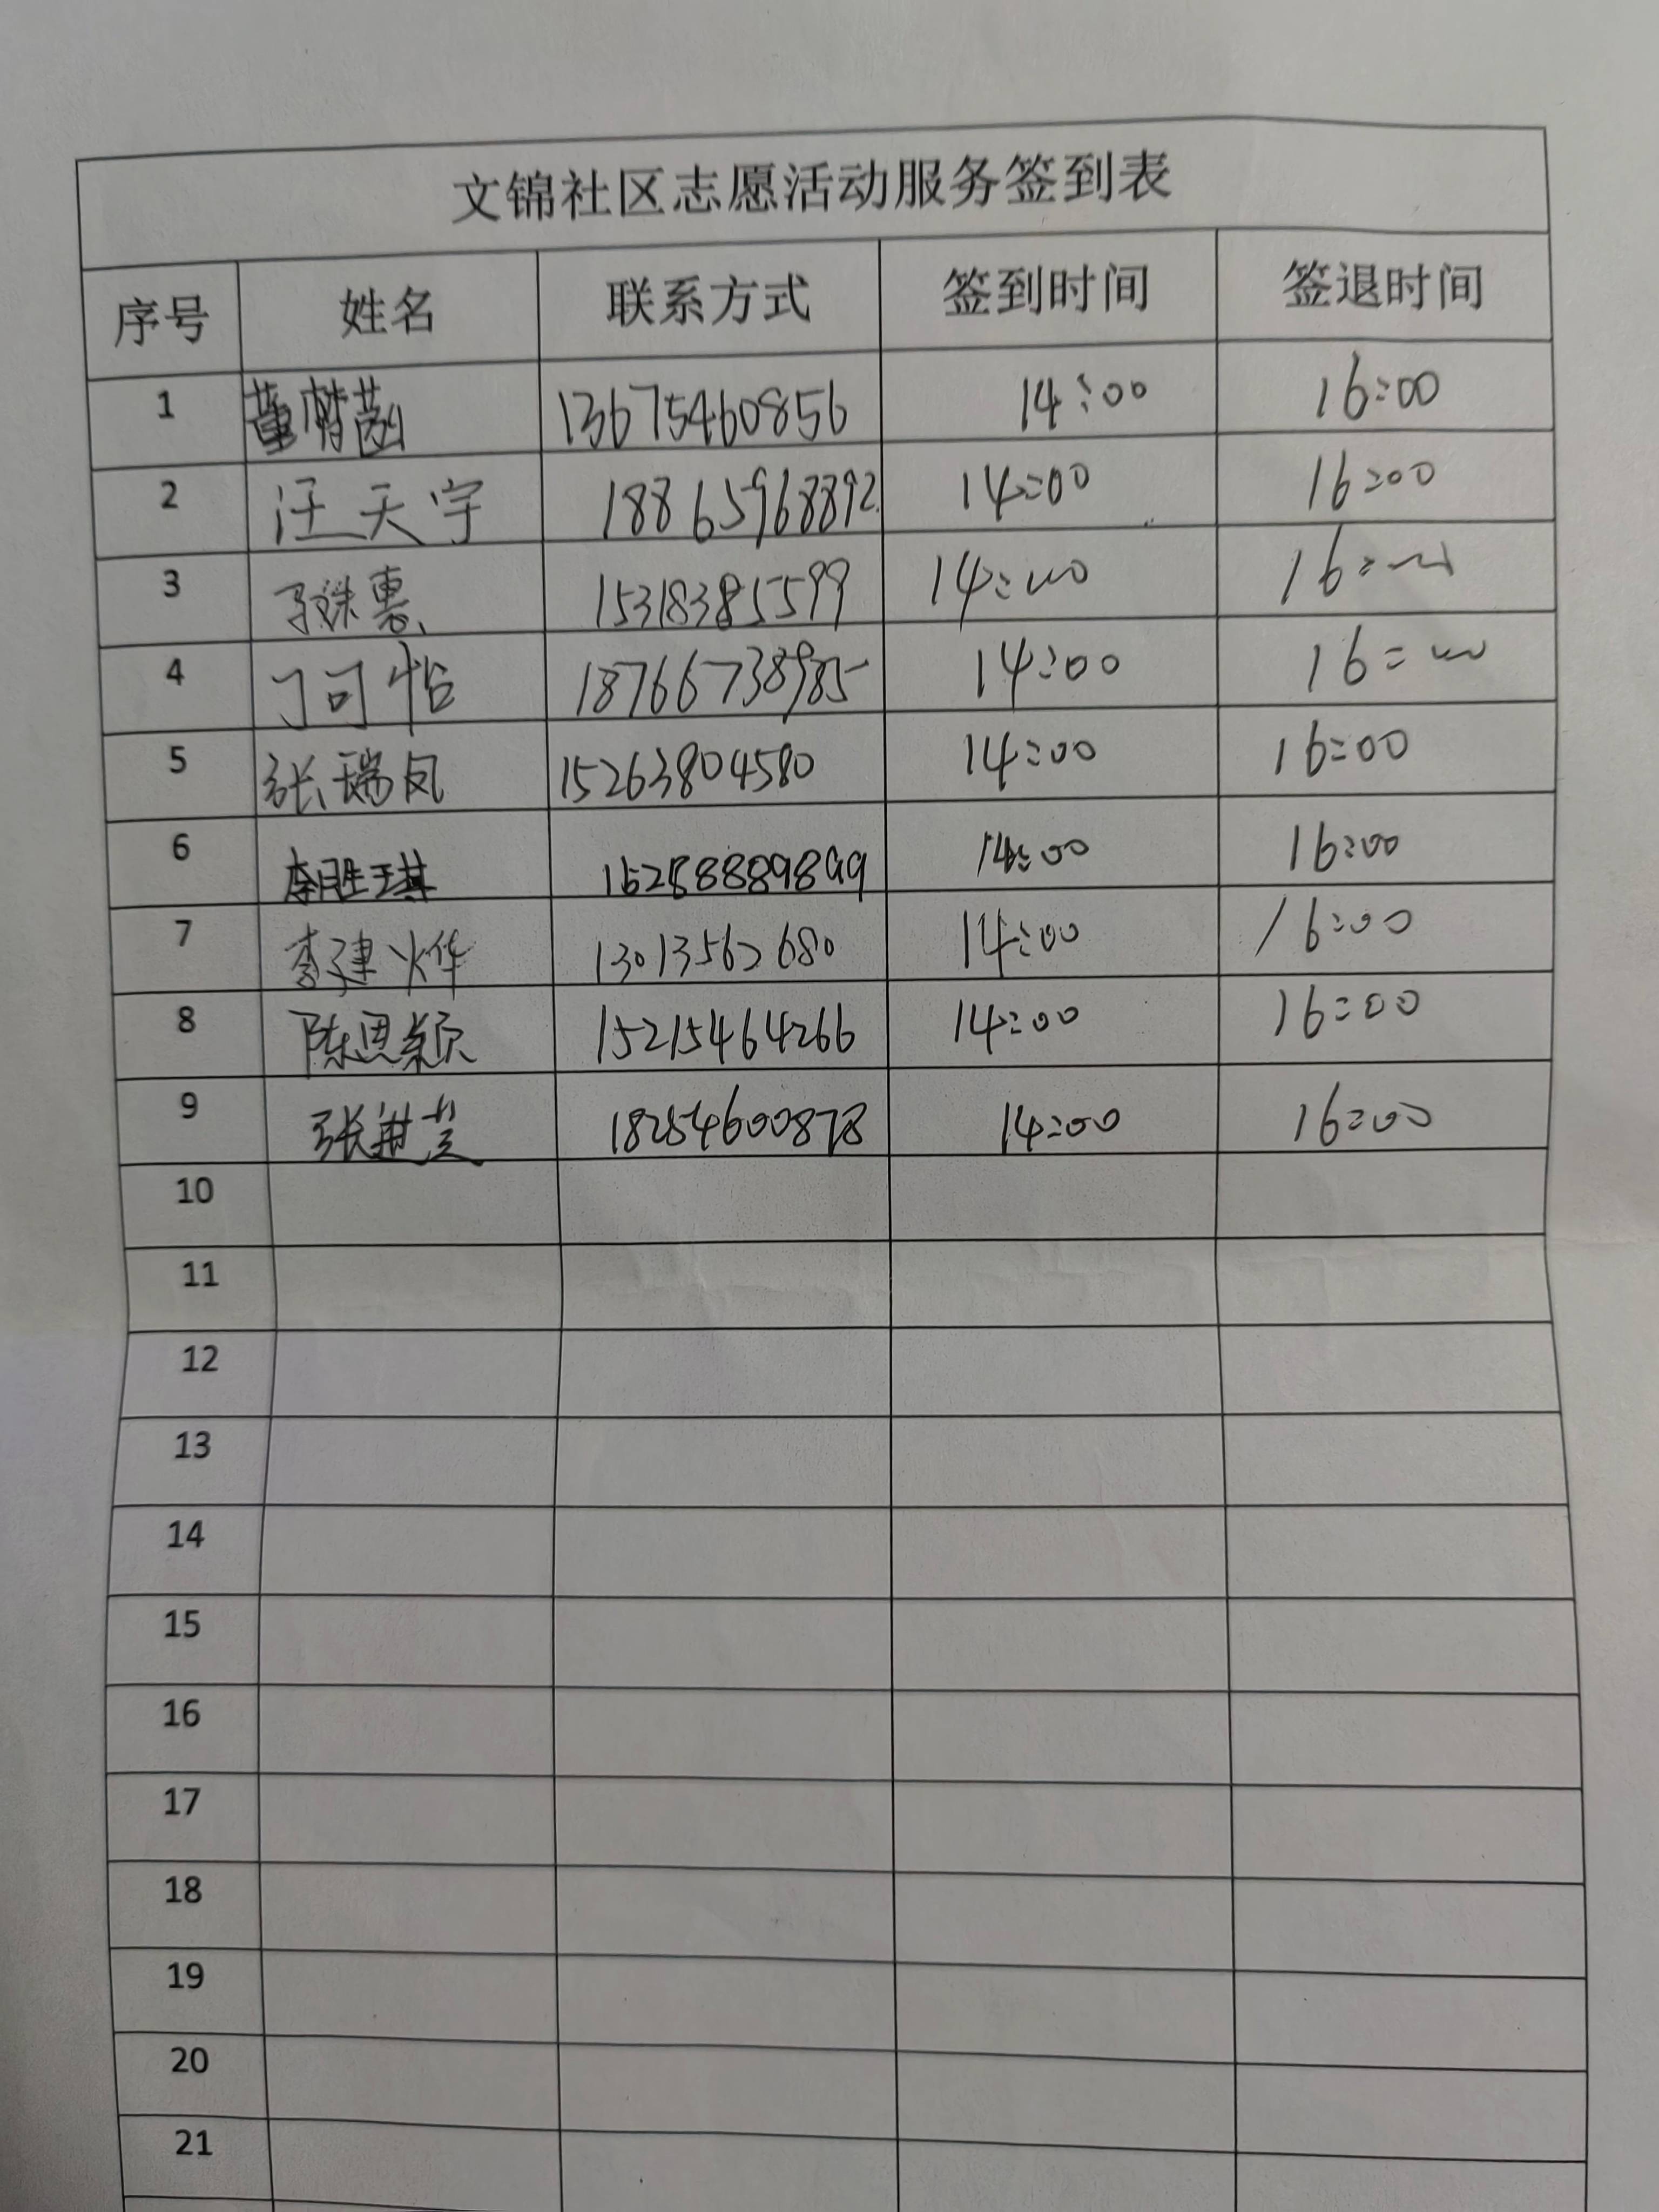 文锦社区志愿活动服务签到表
序号 姓名 联系方式 签到时间 签退时间
1 董 13675460856 14:00 16:00
2 汪天宇 18865968892 14:00 16:00
3 惠 15318385599 14:00 16:00
4 丁可怡 18766738985 14:00 16:00
5 张瑞凤 15263804580 14:00 16:00
6 李胜琪 14:00 16:00
7 李建烨 13013562680 14:00 16:00
8 陈思颖 15215464266 14:00 16:00
9 张进芸 18254600878 14:00 16:00
10
11
12
13
14
15
16
17
18
19
20
21